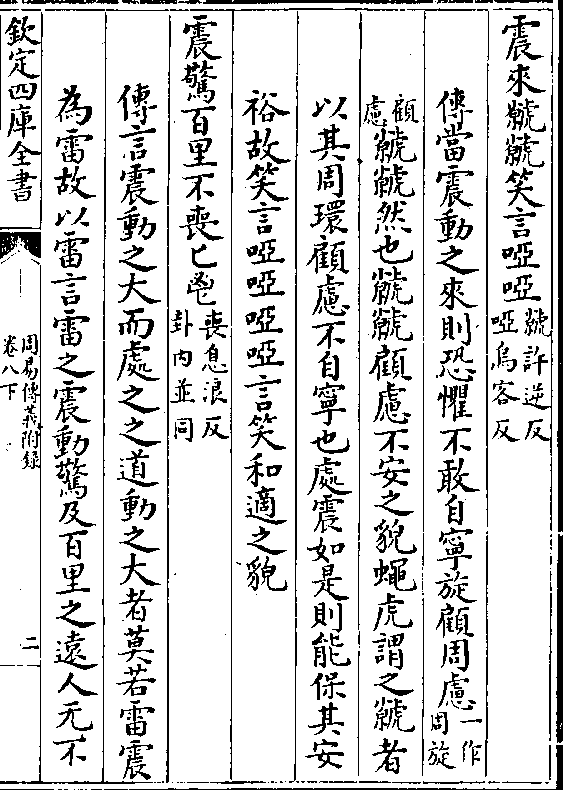 震來虩虩笑言啞啞虩許逆反啞烏客反
傳當震動之來則恐懼不敢自寧旋顧周慮一作周旋
顧慮虩虩然也虩虩顧慮不安之貌蠅虎謂之虩者
以其周環顧慮不自寧也處震如是則能保其安
裕故笑言啞啞啞啞言笑和適之貌
震驚百里不喪匕鬯喪息浪反卦内並同
傳言震動之大而處之之道動之大者莫若雷震
為雷故以雷言雷之震動驚及百里之遠人无不
欽定四庫全書
周易傳義附録
卷八下
二